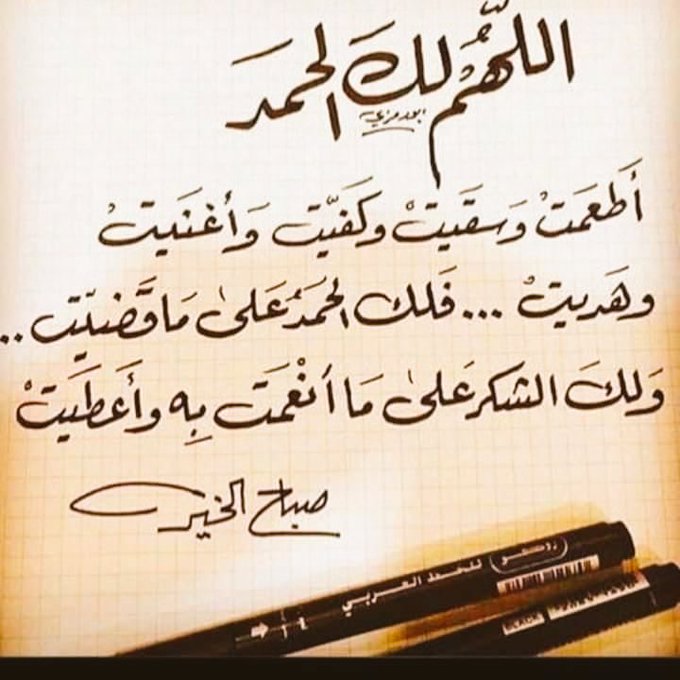 اللّهُم لكَ الحمد
ابو رمزي
أَطعَمتْ وَسقَيتْ وكَفَيّت وَأغنَيتْ
وهَديتْ ... فَلك الحَمدُ عَلىٰ مَا قَضيّت ..
وَلكَ الشكر عَلىٰ مَا أنْعَمَت بِه وأَعطَيتْ
صباح الخير
زوكو
للخط العربي
BLACK